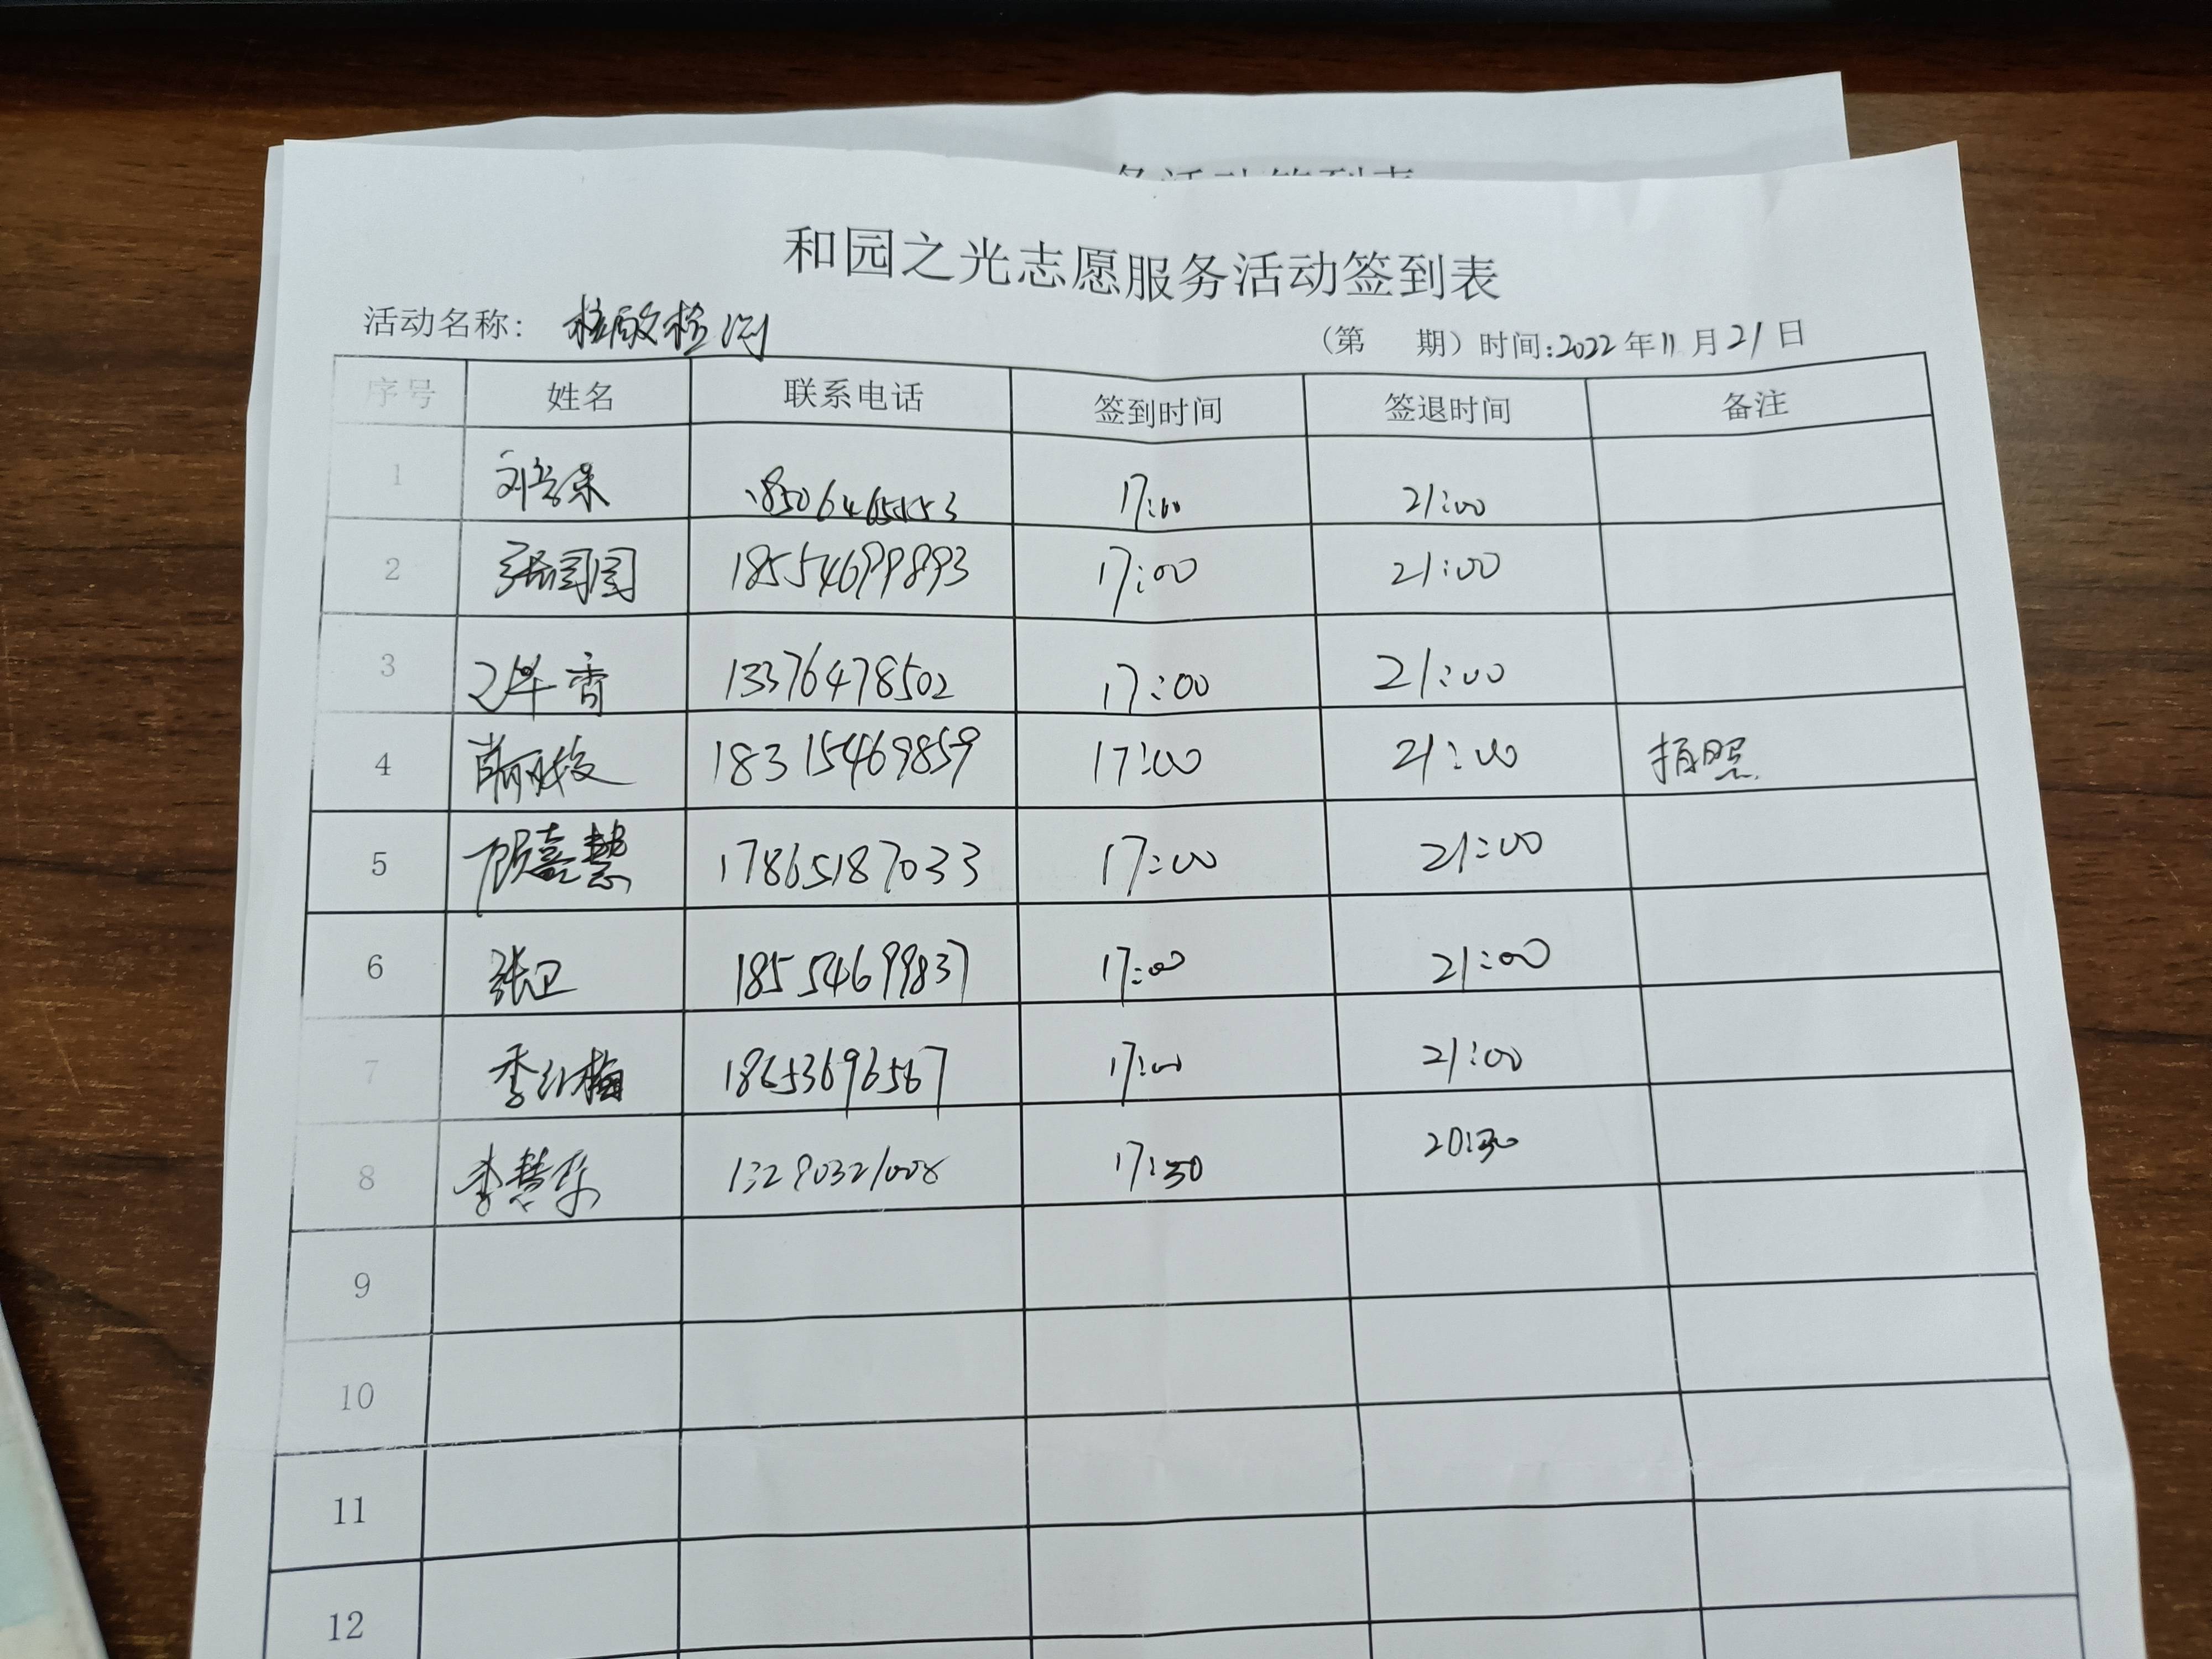 和园之光志愿服务活动签到表
活动名称: 核酸检测 (第 期) 时间:2022年11月21日
序号 姓名 联系电话 签到时间 签退时间 备注
1 17:00 21:00
2 张园园 18554699893 17:00 21:00
3 13376478502 17:00 21:00
4 18315469859 17:00 21:00 拍照
5 顾嘉慧 17865187033 17:00 21:00
6 张卫 18554699837 17:00 21:00
7 季红梅 18653696567 17:00 21:00
8 李慧东 17:30 20:30
9
10
11
12